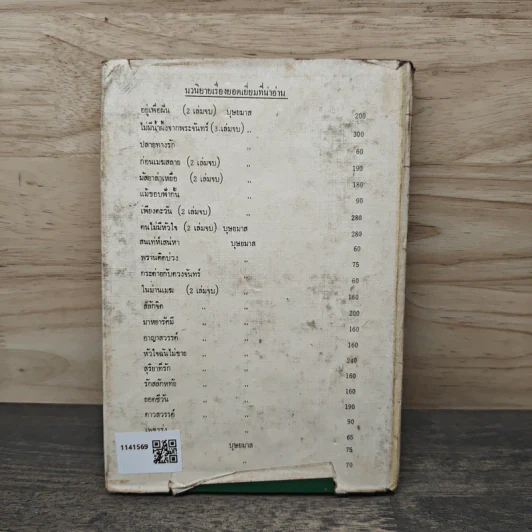 นวนิยายเรื่องยอดเยี่ยมที่น่าอ่าน
อยู่เพื่อฝัน (2 เล่มจบ) บุษยมาส 200
ไม่มีน้ำผึ้งจากพระจันทร์ (3 เล่มจบ) ,, 300
ปลายทางรัก ,, 60
ก่อนเมฆสลาย (2 เล่มจบ) ,, 190
(2 เล่มจบ) ,, 180
แม้ขอบฟ้ากั้น ,, 90
เพียงตะวัน (2 เล่มจบ) ,, 280
คนไม่มีหัวใจ (2 เล่มจบ) บุษยมาส 280
สนเท่ห์เสน่หา บุษยมาส 60
พรานติดบ่วง ,, 75
กระต่ายกับดวงจันทร์ ,, 60
ในม่านเมฆ (2 เล่มจบ) ,, 160
สลักจิต ,, ,, 200
มาหยารัศมี ,, ,, 160
อาญาสวรรค์ ,, ,, 160
หัวใจฉันไม่ขาย ,, ,, 240
สุริยาที่รัก ,, ,, 160
รักสลักหทัย ,, ,, 160
ยอดชีวัน ,, ,, 190
ดาวสวรรค์ ,, ,, 90
,, ,, 65
บุษยมาส 75
,, 70
1141569